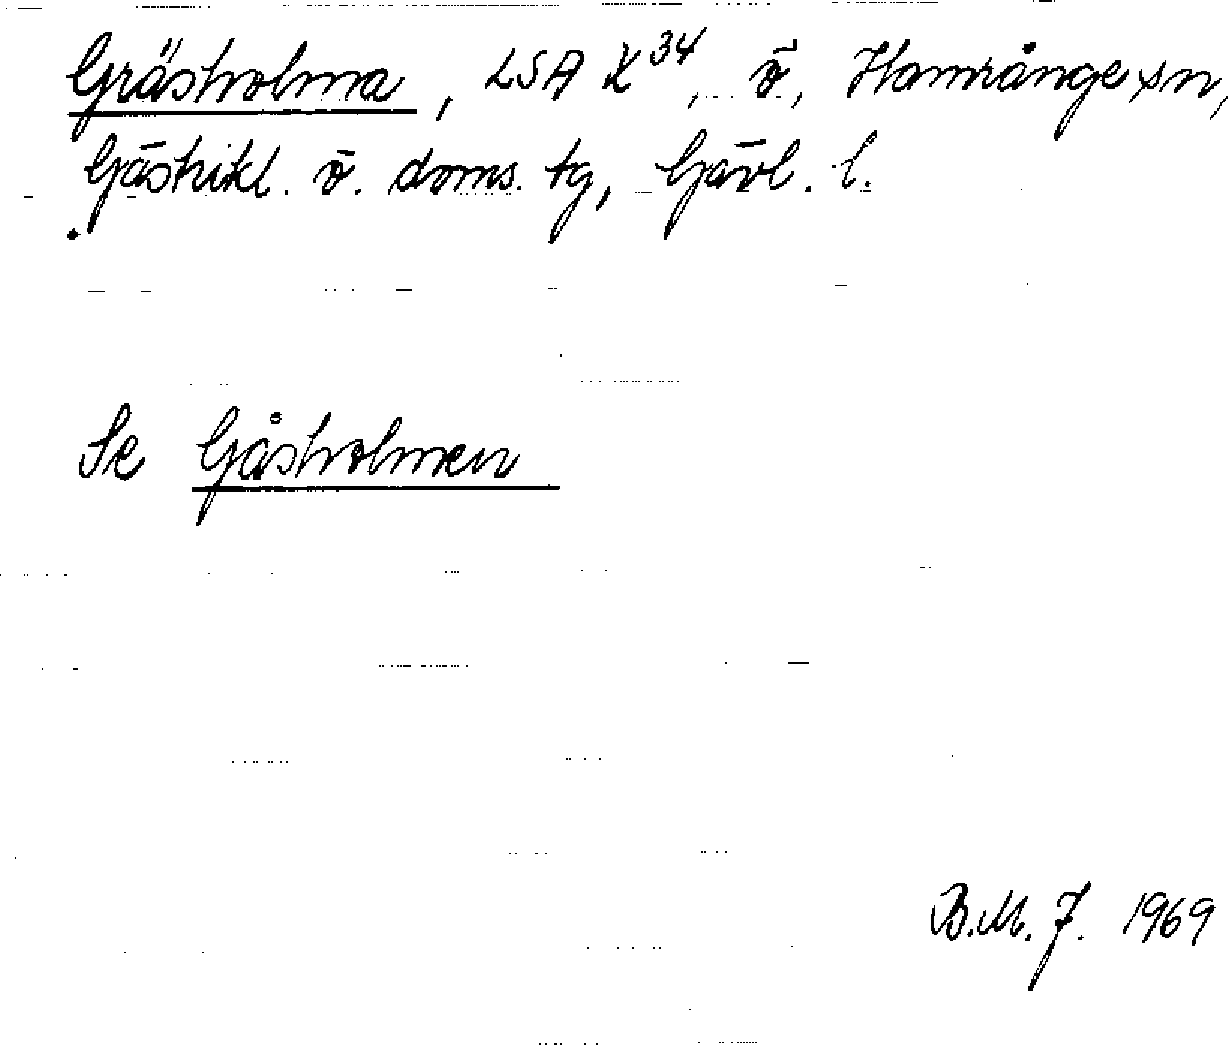 Gräsholma, LSA X34, ö, Hamrånge sn,
Gästrikl. ö. doms. tg, Gävl. l.
Se Gåsholmen
B.M.J. 1969